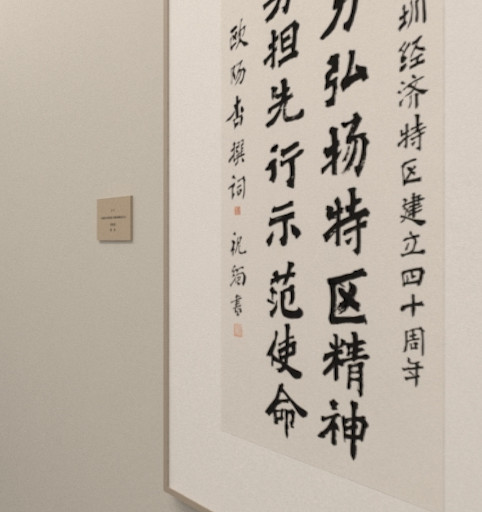 圳经济特区建立四十周年
力弘扬特区精神
担先行示范使命
欧阳
撰词
祝
书